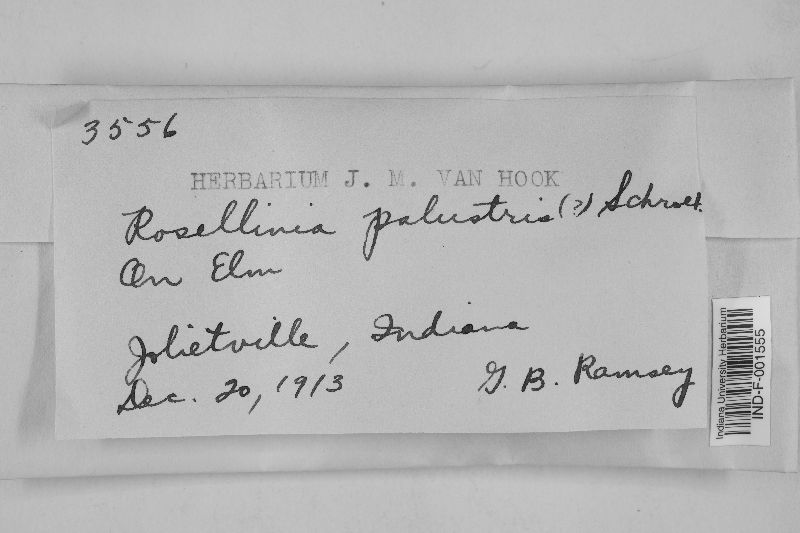 3556
HERBARIUM J. M. VAN HOOK
Rosellinia palustris (?) Schroet.
On Elm
Jolietville, Indiana
Dec. 20, 1913
G. B. Ramsey
Indiana University Herbarium
IND-F-001555